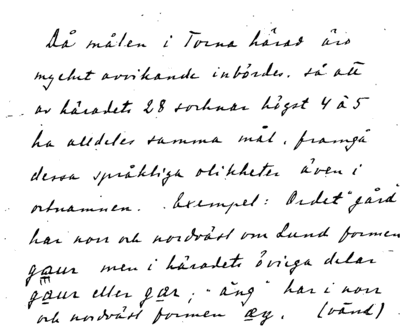 Då målen i Torna härad äro
mycket avvikande inbördes, så att
av häradets 28 socknar högst 4 à 5
ha alldeles samma mål, framgå
dessa språkliga olikheter även i
ortnamnen. Exempel: Ordet "gård"
har norr och nordväst om Lund formen
gæur men i häradets övriga delar
gaur eller gær; "äng" har i norr
och nordväst formen æy. (vänd)